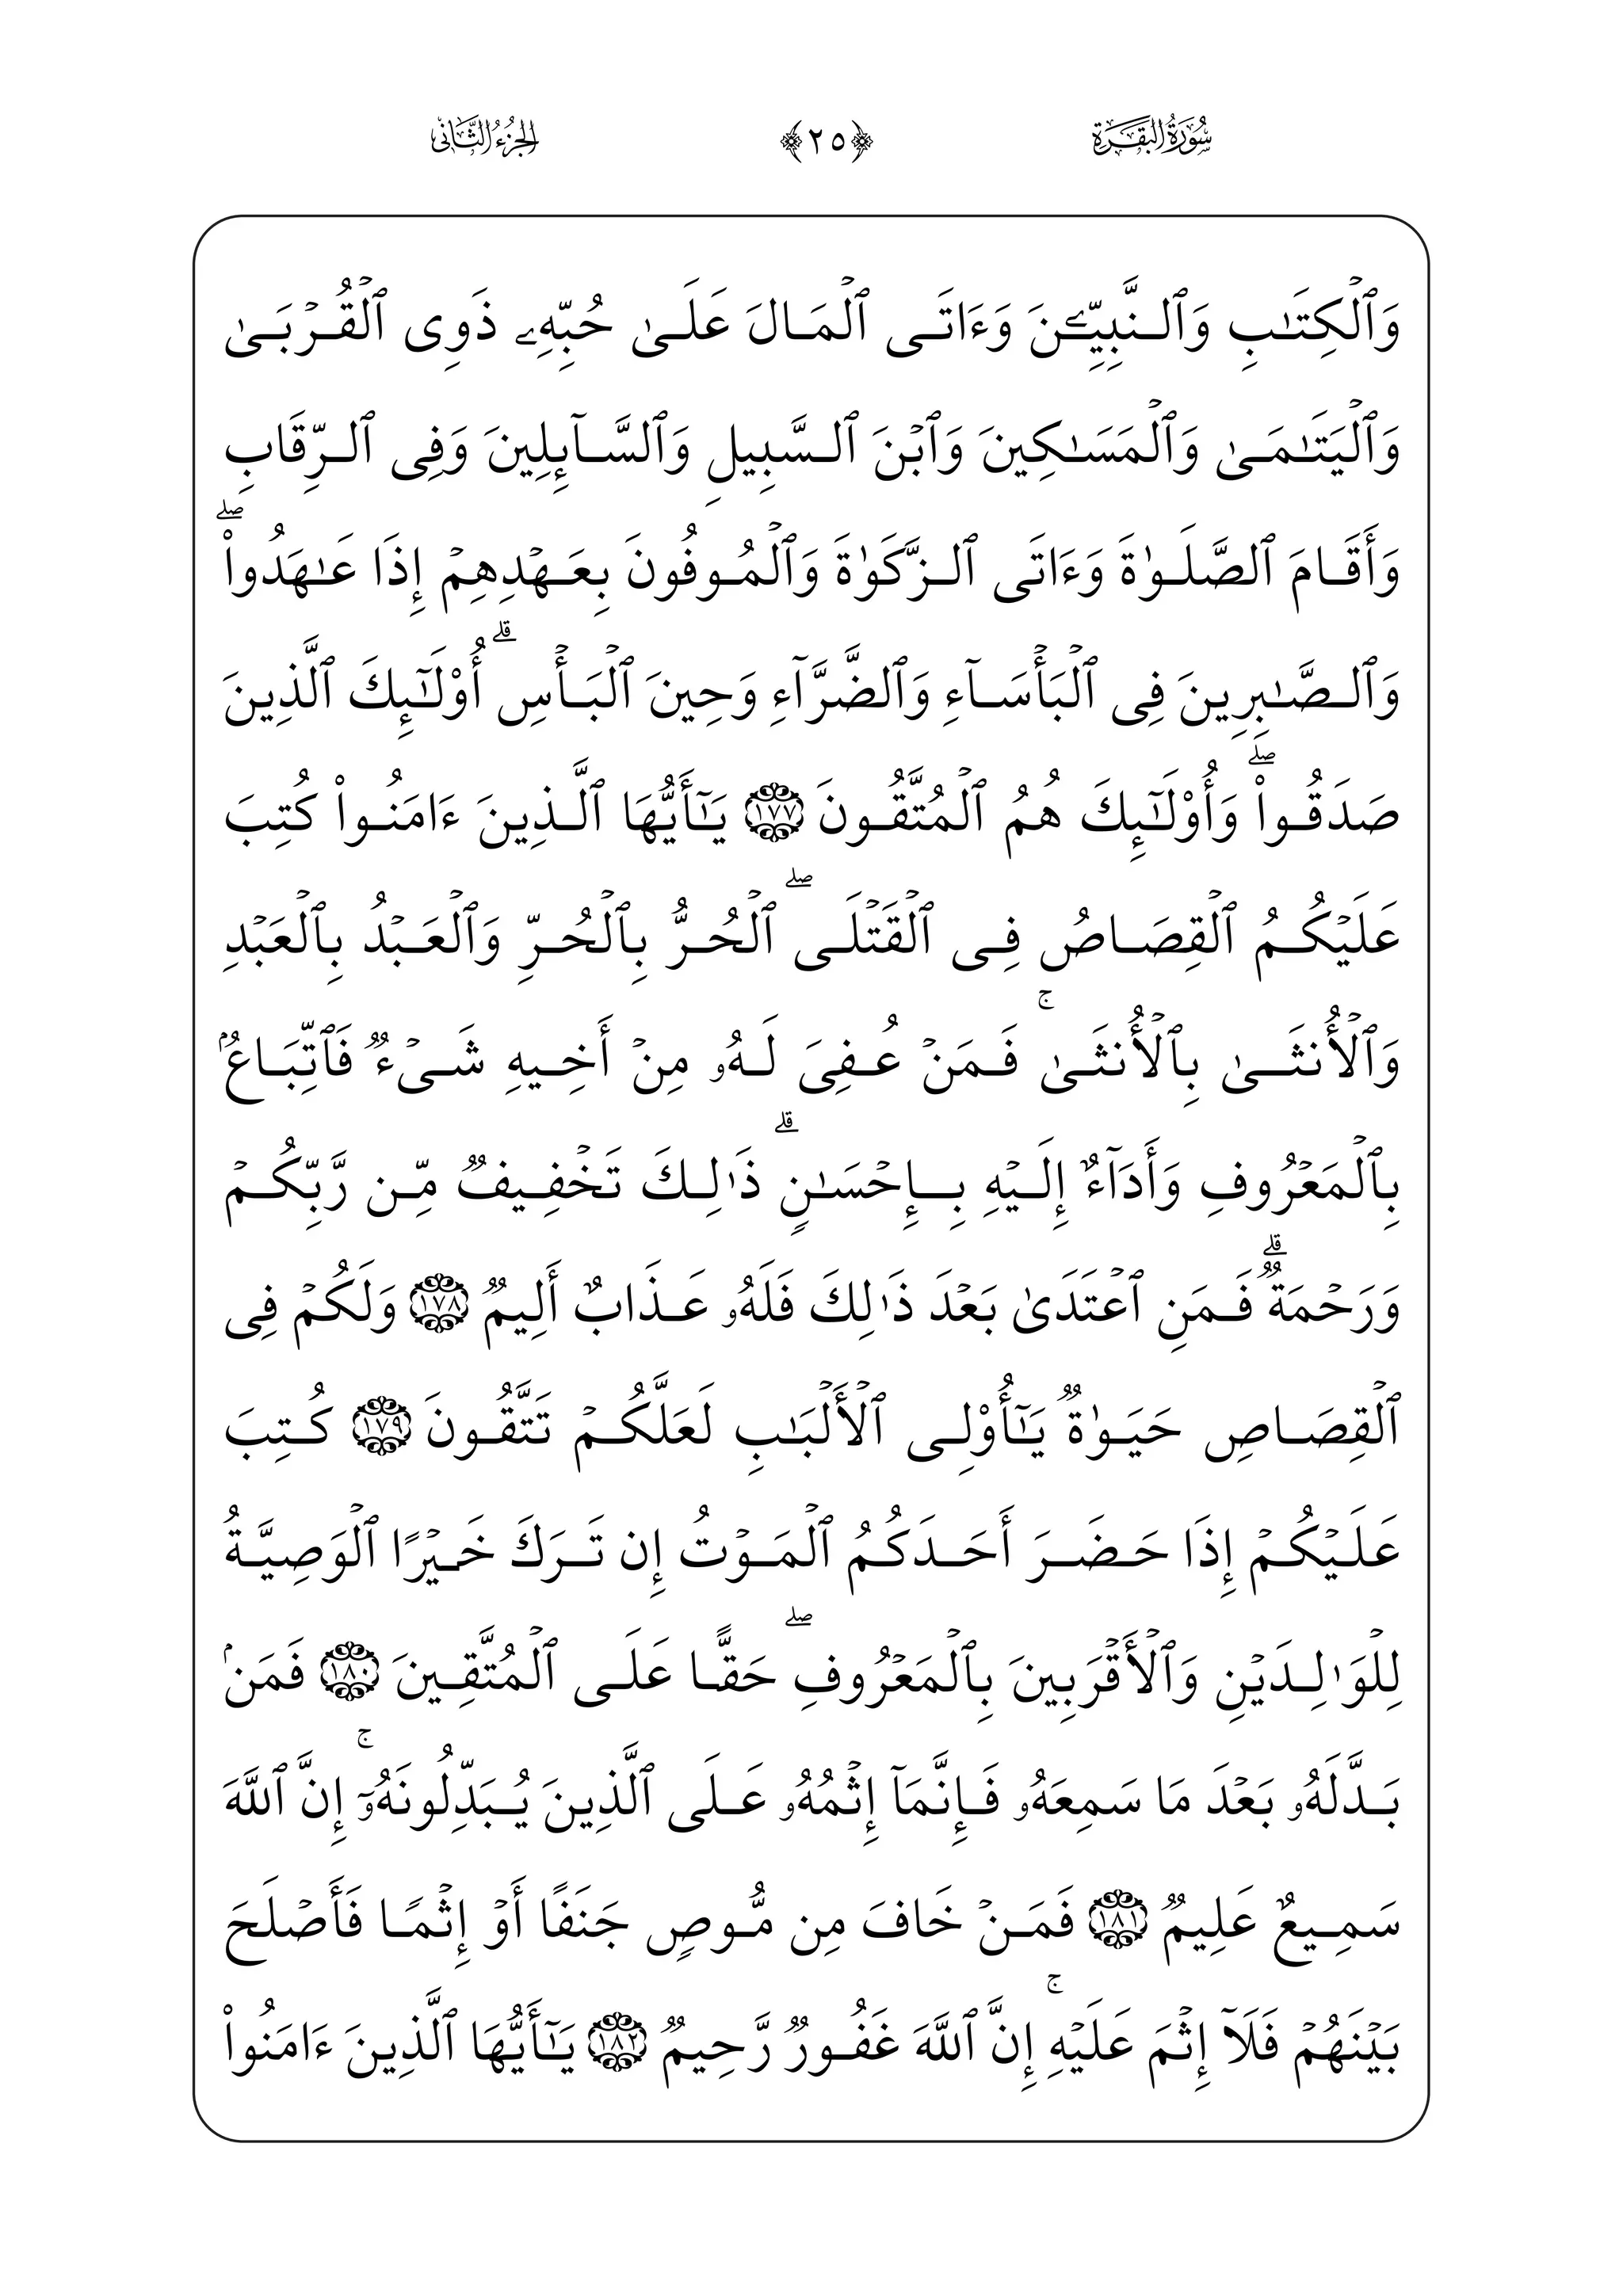 سُورَةُ البَقَرَةِ ﴿٢٥﴾ الجُزْءُ الثَّانِى
وَٱلۡكِتَٰبِ وَٱلنَّبِيِّـۧنَ وَءَاتَى ٱلۡمَالَ عَلَىٰ حُبِّهِۦ ذَوِى ٱلۡقُرۡبَىٰ
وَٱلۡيَتَٰمَىٰ وَٱلۡمَسَٰكِينَ وَٱبۡنَ ٱلسَّبِيلِ وَٱلسَّآئِلِينَ وَفِى ٱلرِّقَابِ
وَأَقَامَ ٱلصَّلَوٰةَ وَءَاتَى ٱلزَّكَوٰةَ وَٱلۡمُوفُونَ بِعَهۡدِهِمۡ إِذَا عَٰهَدُواْۖ
وَٱلصَّٰبِرِينَ فِى ٱلۡبَأۡسَآءِ وَٱلضَّرَّآءِ وَحِينَ ٱلۡبَأۡسِۗ أُوْلَٰٓئِكَ ٱلَّذِينَ
صَدَقُواْۖ وَأُوْلَٰٓئِكَ هُمُ ٱلۡمُتَّقُونَ ١٧٧ يَٰٓأَيُّهَا ٱلَّذِينَ ءَامَنُواْ كُتِبَ
عَلَيۡكُمُ ٱلۡقِصَاصُ فِى ٱلۡقَتۡلَىۖ ٱلۡحُرُّ بِٱلۡحُرِّ وَٱلۡعَبۡدُ بِٱلۡعَبۡدِ
وَٱلۡأُنثَىٰ بِٱلۡأُنثَىٰۚ فَمَنۡ عُفِىَ لَهُۥ مِنۡ أَخِيهِ شَىۡءٞ فَٱتِّبَاعُۢ
بِٱلۡمَعۡرُوفِ وَأَدَآءٌ إِلَيۡهِ بِإِحۡسَٰنٖۗ ذَٰلِكَ تَخۡفِيفٞ مِّن رَّبِّكُمۡ
وَرَحۡمَةٞۗ فَمَنِ ٱعۡتَدَىٰ بَعۡدَ ذَٰلِكَ فَلَهُۥ عَذَابٌ أَلِيمٞ ١٧٨ وَلَكُمۡ فِى
ٱلۡقِصَاصِ حَيَوٰةٞ يَٰٓأُوْلِى ٱلۡأَلۡبَٰبِ لَعَلَّكُمۡ تَتَّقُونَ ١٧٩ كُتِبَ
عَلَيۡكُمۡ إِذَا حَضَرَ أَحَدَكُمُ ٱلۡمَوۡتُ إِن تَرَكَ خَيۡرًا ٱلۡوَصِيَّةُ
لِلۡوَٰلِدَيۡنِ وَٱلۡأَقۡرَبِينَ بِٱلۡمَعۡرُوفِۖ حَقًّا عَلَى ٱلۡمُتَّقِينَ ١٨٠ فَمَنۢ
بَدَّلَهُۥ بَعۡدَ مَا سَمِعَهُۥ فَإِنَّمَآ إِثۡمُهُۥ عَلَى ٱلَّذِينَ يُبَدِّلُونَهُۥٓۚ إِنَّ ٱللَّهَ
سَمِيعٌ عَلِيمٞ ١٨١ فَمَنۡ خَافَ مِن مُّوصٖ جَنَفًا أَوۡ إِثۡمًا فَأَصۡلَحَ
بَيۡنَهُمۡ فَلَآ إِثۡمَ عَلَيۡهِۚ إِنَّ ٱللَّهَ غَفُورٞ رَّحِيمٞ ١٨٢ يَٰٓأَيُّهَا ٱلَّذِينَ ءَامَنُواْ